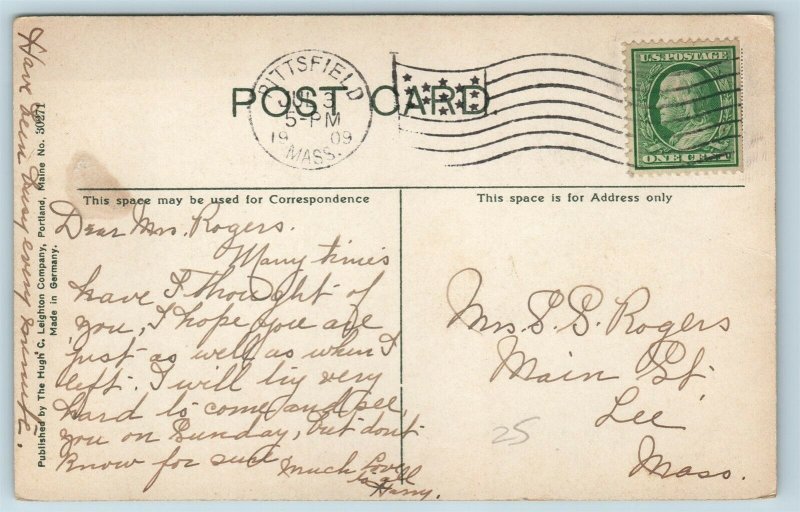 POST CARD
PITTSFIELD
5-PM
19 09
MASS.
U.S. POSTAGE
ONE CENT
This space may be used for Correspondence
This space is for Address only
Dear Mrs. Rogers.
Many times
have I thought of
you, I hope you are
just as well as when I
left. I will try very
hard to come and see,
you on Sunday, but don't
know for sure
Much Love
to all
Harry.
Have been busy every minute.
Mrs. S. S. Rogers
Main St.
Lee
Mass.
25
Published by The Hugh C. Leighton Company, Portland, Maine No. 30271
Made in Germany.